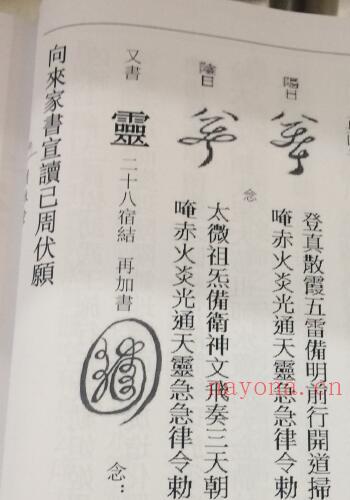 陽日
登真散霞五雷備明前行開道掃
唵赤火炎光通天靈急急律令勅
念
陰日
太微祖炁備衛神文飛奏三天朝
唵赤火炎光通天靈急急律令勅
又書 靈 二十八宿結 再加書
念：
向來家書宣讀已周伏願
nayona.cn